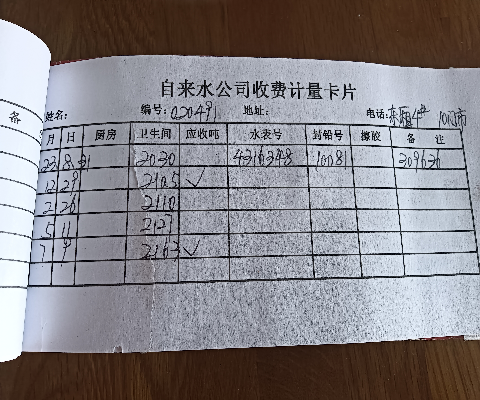 备
自来水公司收费计量卡片
姓名: 编号: 020491 地址: 电话:
月 日 厨房 卫生间 应收吨 水表号 封铅号 橡胶 备 注
23 8.31 2030 4316348 10081 209636
12 29 2105 ✓
2 26 2110
5 11 2127
7 9 2163 ✓